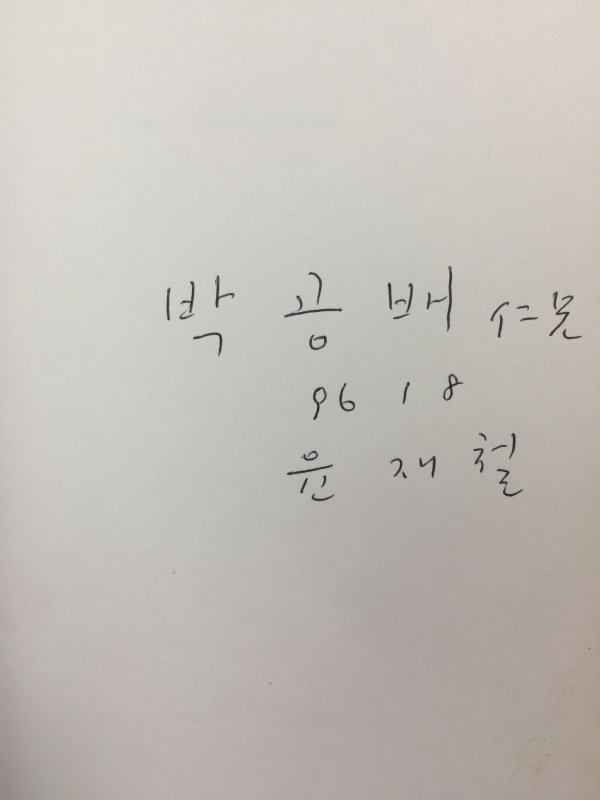 박 공 배 仁兄
96 1 8
윤 재 철